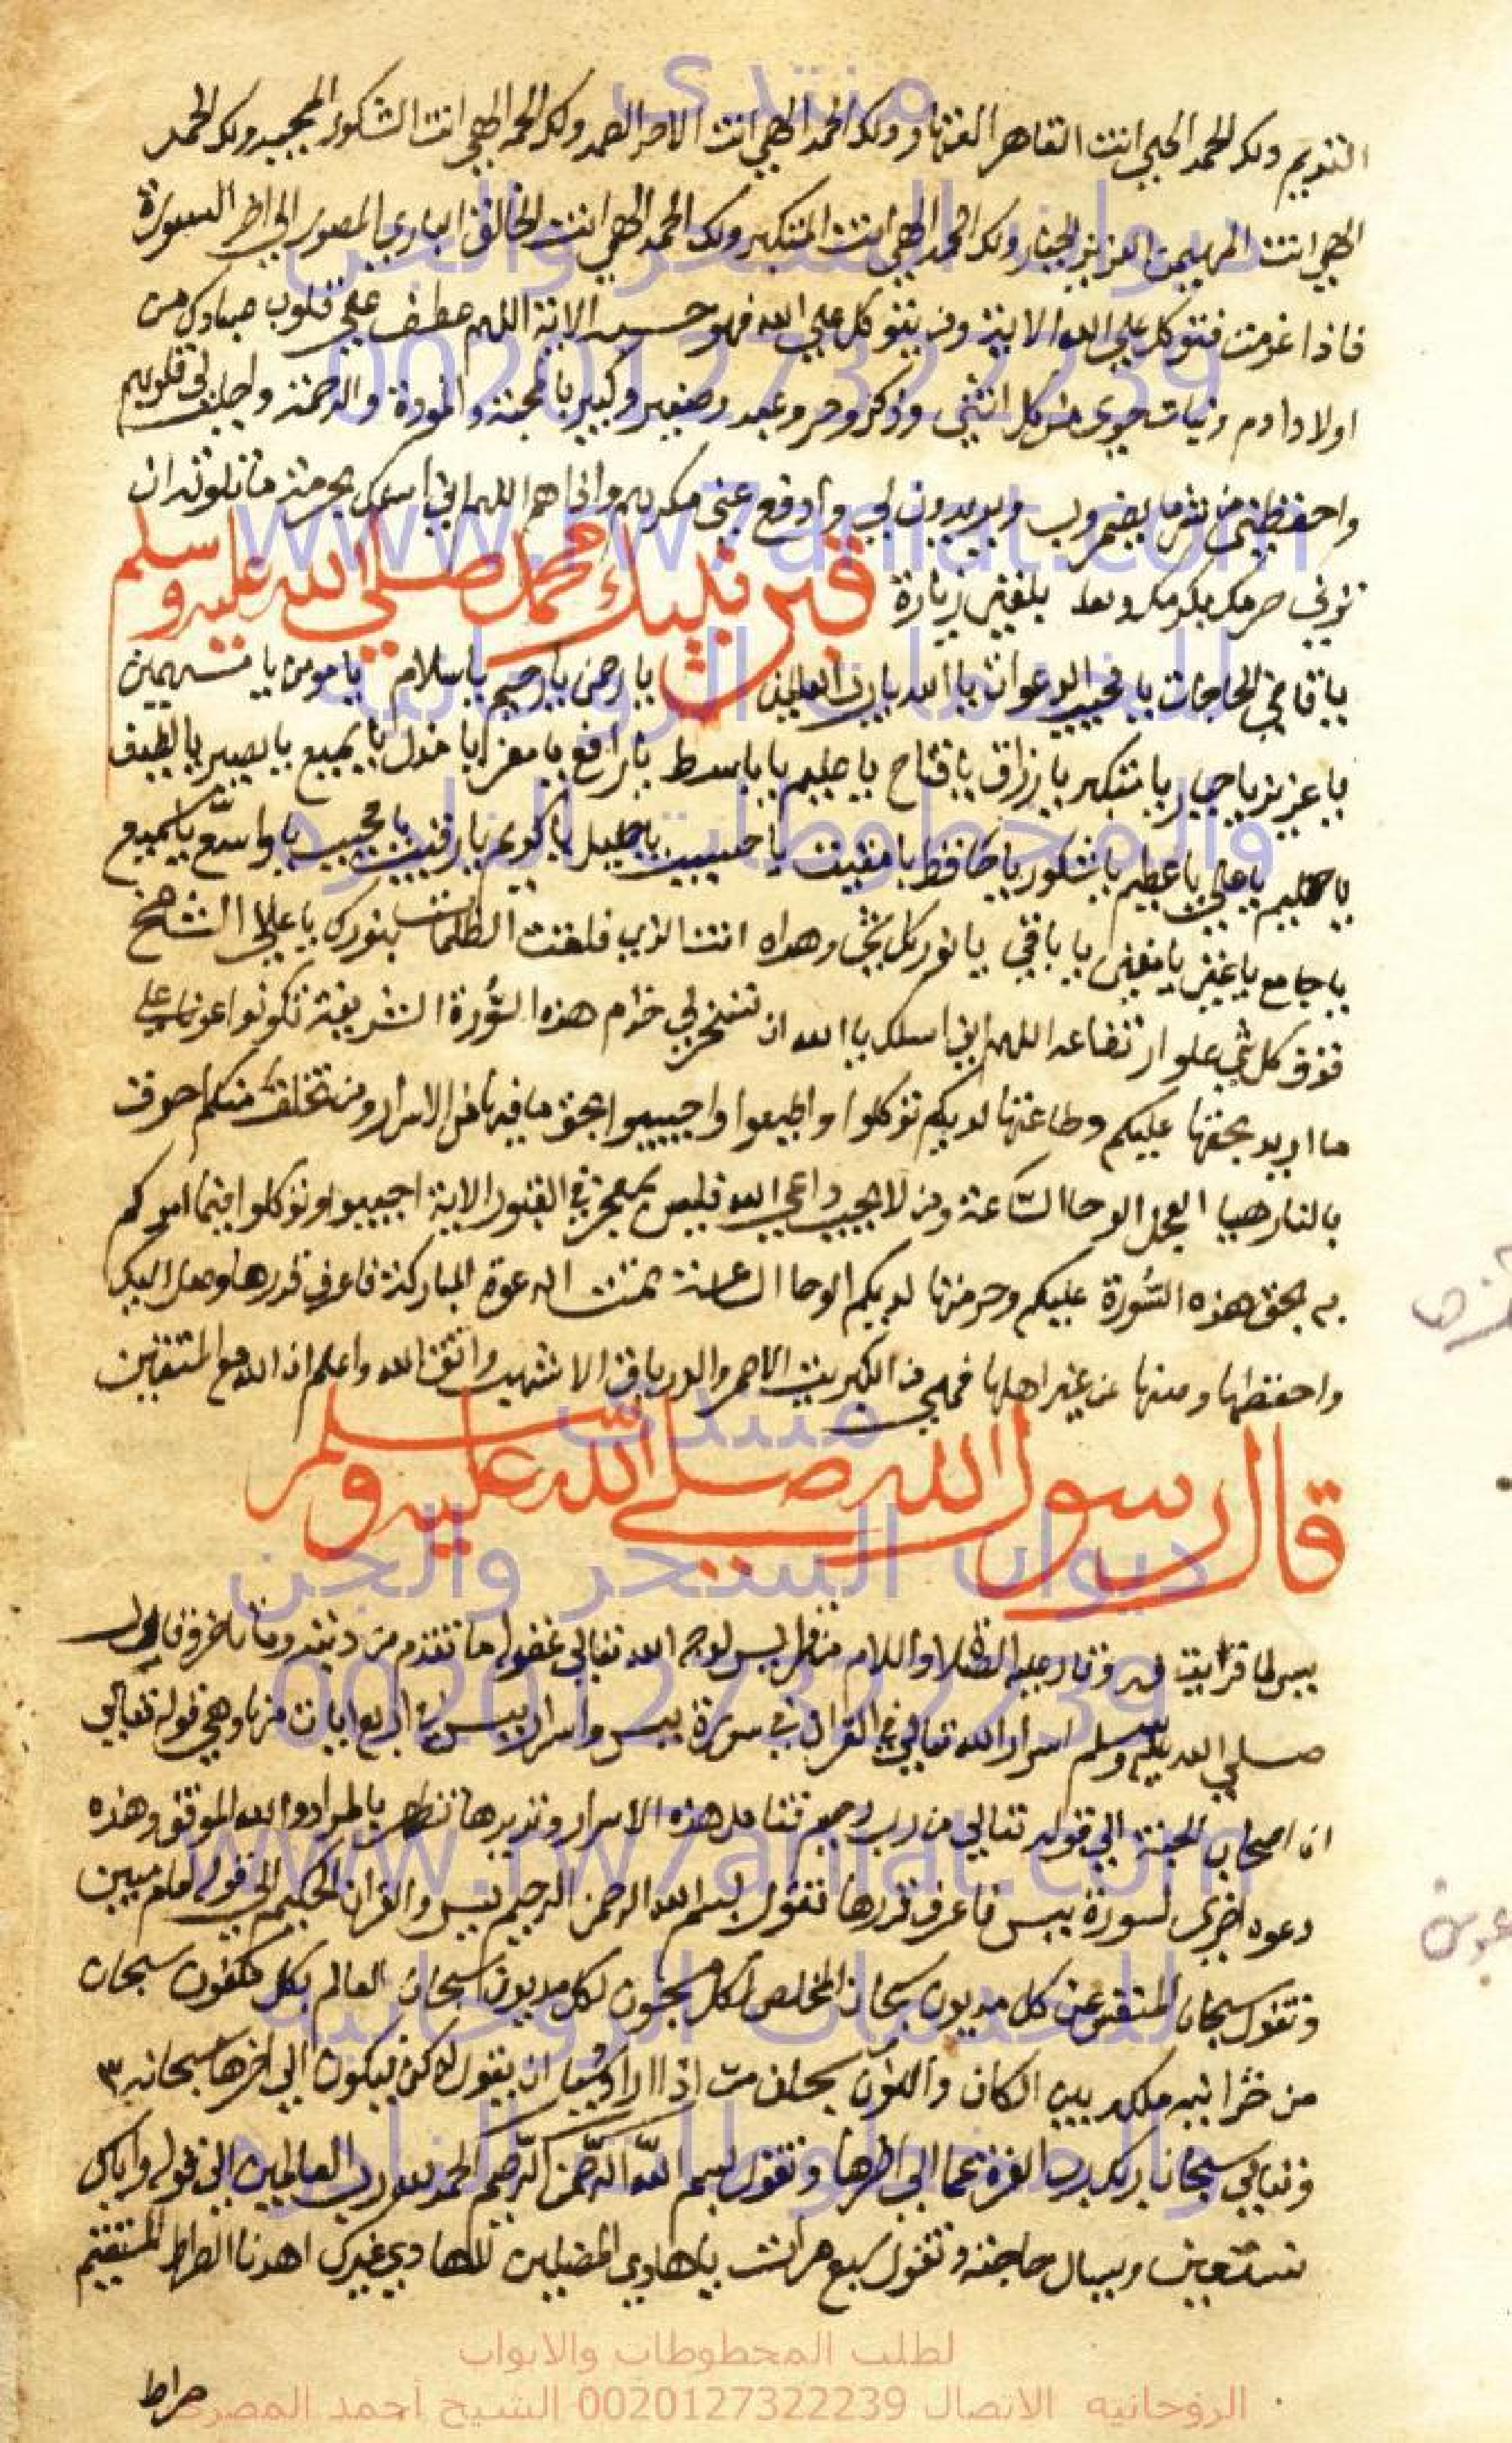 القديم ولك الحمد الهي انت القاهر القهار ولك الحمد الهي انت الاحد الصمد ولك الحمد الهي انت الشكور المجيد ولك الحمد
الهي انت المهيمن العزيز الجبار ولك الحمد الهي انت المتكبر ولك الحمد الهي انت الخالق الباري المصور الي اخر السورة
فاذا عزمت فتوكل علي الله الاية ومن يتوكل علي الله فهو حسبه الاية اللهم عطف علي قلوب عبادك من
اولاد ادم وبنات حوي من كل انثي وذكر وحر وعبد وصغير وكبير با محبة والمودة والرحمة واجلب لي قلوبهم
واحفظني من شر ما يضمرون ويريدون لي وادفع عني مكرهم واذاهم اللهم اني اسئلك بحرمة ما تلوته ان
بلغني زيارة قبر نبيك محمد صلي الله عليه وسلم
يا قاضي الحاجات يا مجيب الدعوات يا الله يا رب العلمين يا رحمن يا رحيم يا سلام يا مومن يا مهيمن
يا عزيز يا جبار يا متكبر يا رزاق يا فتاح يا عليم يا باسط يا رافع يا معز يا مذل يا سميع يا بصير يا لطيف
يا حليم يا علي يا عظيم يا شكور يا حافظ يا مقيت يا حسيب يا جليل يا كريم يا رقيب يا مجيب يا واسع يا سميع
يا جامع يا غني يا مغني يا باقي يا نور كل شي وهداه انت الذي فلقت الظلمات بنورك يا عالي الشامخ
فوق كل شي علو ارتفاعه اللهم اني اسلك يا الله ان تسخر لي خدام هذه السورة الشريفة تكونوا عونا علي
ما اريد بحقها عليكم وطاعتها لديكم توكلوا واطيعوا واجيبوا بحق ما فيها من الاسرار ومن تخلف منكم احرق
بالنار هيا العجل الوحا الساعة ومن لا يجب داعي الله فليس بمعجز في الاية اجيبوا وتوكلوا فيما امركم
به بحق هذه السورة عليكم وحرمتها لديكم الوحا الساعة تمت الدعوة المباركة فاعرف قدرها
واحفظها وصنها عن غير اهلها فهي من الكبريت الاحمر والدرياق الاشهب واتق الله واعلم ان الله مع المتقين
قال رسول الله صلي الله عليه وسلم
يس لما قرايت له وقال عليه الصلاة والسلام من قرا يس لوجه الله تعالي غفر له ما تقدم من ذنبه وما تاخر وقال
صلي الله عليه وسلم اسرار الله تعالي في القران في سورة يس واسرار يس في اربع ايات منها وهي قوله تعالي
ان اصحاب الجنة الي قوله تعالي من رب رحيم فتامل هذه الاسرار وتدبرها تظفر بالمراد والله الموفق وهذه
دعوه اخرى لسورة يس فاعرف قدرها تقول بسم الله الرحمن الرحيم يس والقران الحكيم الي قوله امام مبين
وتقول سبحان المنفس عن كل مديون سبحان المخلص لكل مسجون سبحان العالم بكل مكنون سبحان
من خزائنه ملكه بين الكاف والنون سبحان من اذا اراد شيا ان يقول له كن فيكون الي اخرها سبحانه ٣
وتعالي سبحان ربك رب العزة عما الي اخرها وتقول بسم الله الرحمن الرحيم الحمد لله رب العالمين الي قوله واياك
نستعين ويسال حاجته وتقول سبع مرات يا هادي المضلين لا هادي غيرك اهدنا الصراط المستقيم
صراط
منتدى
ديوان السحر والجن
0020127322239
www.rw7aniat.com
للخدمات الروحانية
والمخطوطات النادره
منتدى
ديوان السحر والجن
0020127322239
www.rw7aniat.com
للخدمات الروحانية
والمخطوطات النادره
لطلب المخطوطات والابواب
الروحانيه الاتصال 0020127322239 الشيخ أحمد المصرى